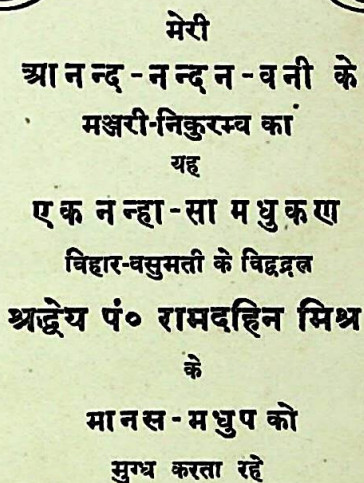 मेरी
आनन्द-नन्दन-वनी के
मञ्जरी-निकुरम्व का
यह
एक नन्हा-सा मधुकण
विहार-वसुमती के विद्वद्रत्न
श्रद्धेय पं० रामदहिन मिश्र
के
मानस-मधुप को
मुग्ध करता रहे